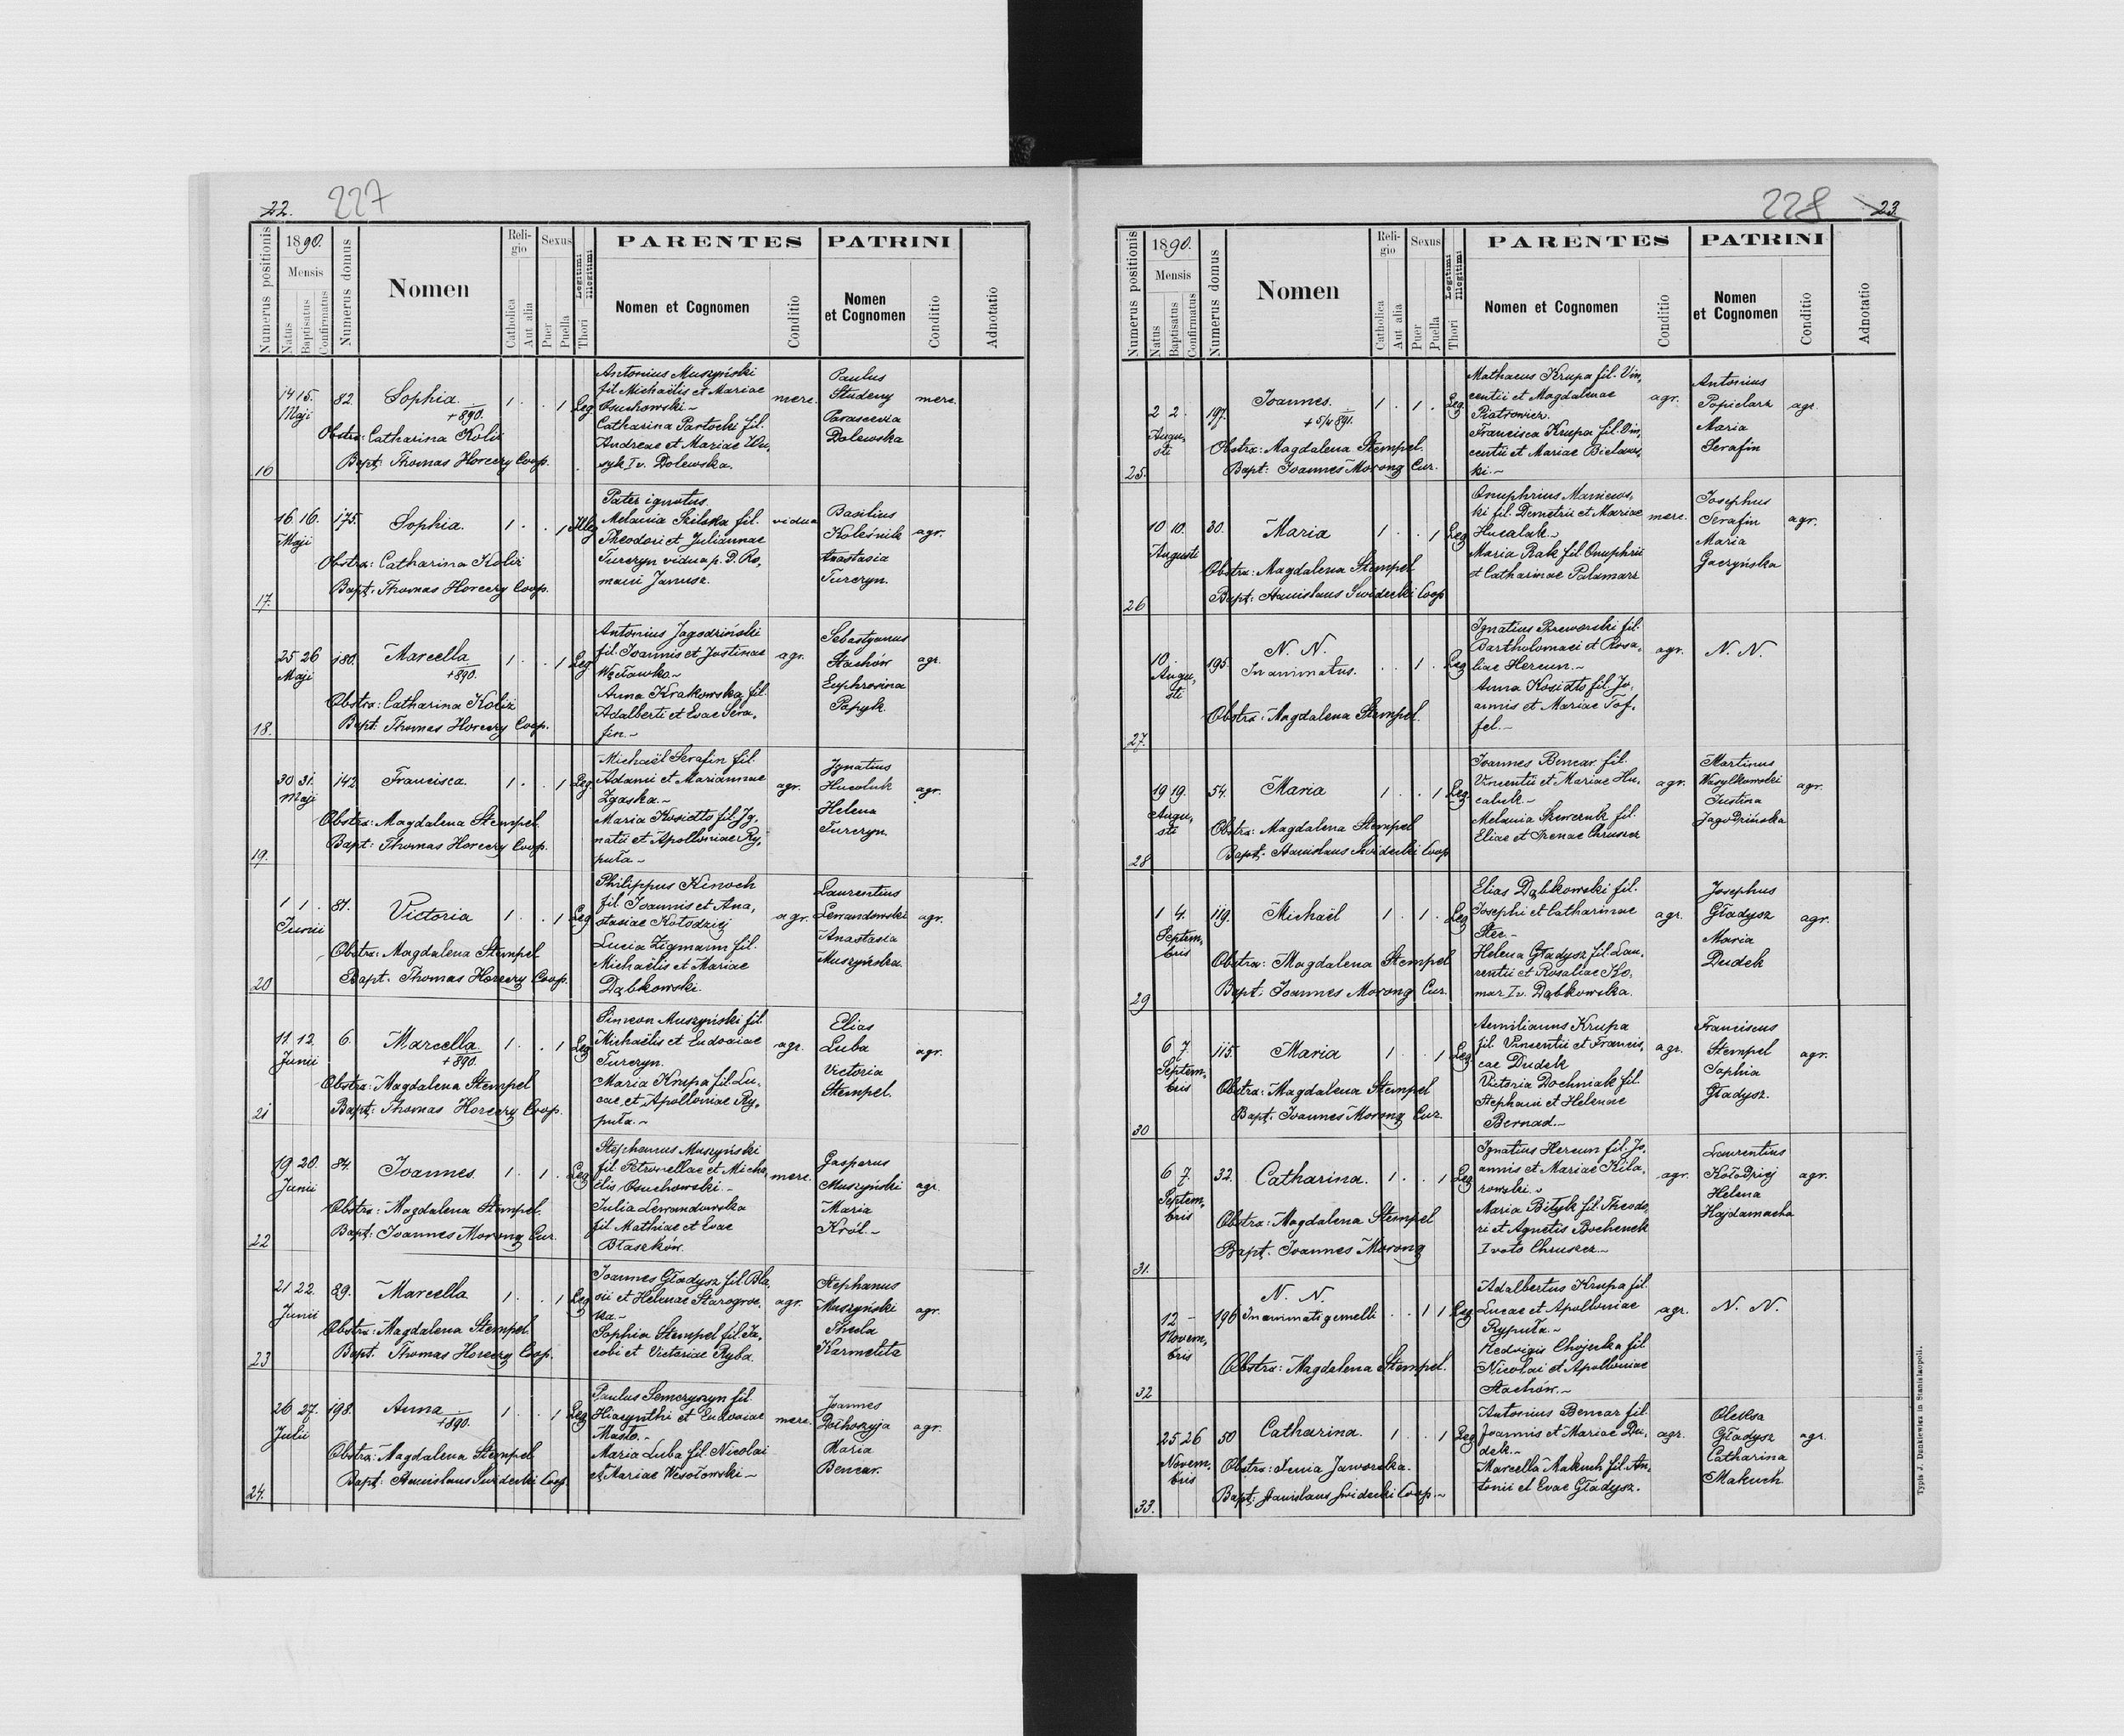 22.
227
Numerus positionis
1890.
Mensis
Natus
Baptisatus
Confirmatus
Numerus domus
Nomen
Religio
Catholica
Aut alia
Sexus
Puer
Puella
Legitimi
Illegitimi
Thori
PARENTES
Nomen et Cognomen
Conditio
PATRINI
Nomen
et Cognomen
Conditio
Adnotatio
16
14 15.
Maji
82.
Sophia.
+ 890.
1 . . 1 Leg
Obstra: Catharina Kolir
Bapt: Thomas Horeczy Coop.
Antonius Muszyński
fil. Michaëlis et Mariae
Osuchowski.~
Catharina Partocki fil.
Andreae et Mariae
syk I v. Dolewska.
merc.
Paulus
Studeny
Parascevia
Dolewska
merc.
17.
16. 16.
Maji
175.
Sophia.
1 . . 1 Illeg
Obstra: Catharina Kolir
Bapt: Thomas Horeczy Coop.
Pater ignotus
Melania Szilska fil.
Theodori et Juliannae
Turczyn vidua p. D. Ro,
mani Janusz.
vidua
Basilius
Koleśnik
Anastasia
Turczyn.
agr.
18.
25 26
Maji
180.
Marcella
+ 890.
1 . . 1 Leg
Obstra: Catharina Kolir
Bapt: Thomas Horeczy Coop.
Antonius Jagodziński
fil. Joannis et Justinae
Węcławka.~
Anna Krakowska fil.
Adalberti et Evae Sera,
fin.~
agr.
Sebastyanus
Stachów
Euphrosina
Papyk.
agr.
19.
30 31.
Maji
142
Francisca.
1 . . 1 Leg
Obstra: Magdalena Stempel.
Bapt: Thomas Horeczy Coop.
Michaël Serafin fil.
Adami et Mariannae
Zgaska.~
Maria Kosidło fil. Ig,
natii et Apolloniae Ry,
puła.~
agr.
Ignatius
Huculuk
Helena
Turczyn
agr.
20
1 1.
Junii
81.
Victoria
1 . . 1 Leg
Obstra: Magdalena Stempel
Bapt: Thomas Horeczy Coop.
Philippus Kinoch
fil. Joannis et Ana,
stasiae Kołodziej
Lucia Zigmann fil.
Michaëlis et Mariae
Dąbkowski.
agr.
Laurentius
Lewandowski
Anastasia
Muszyńska.
agr.
21
11. 12.
Junii
6.
Marcella.
+ 890.
1 . . 1 Leg
Obstra: Magdalena Stempel
Bapt: Thomas Horeczy Coop.
Simeon Muszyński fil.
Michaëlis et Eudoxiae
Turczyn.
Maria Krupa fil. Lu,
cae et Apolloniae Ry,
puła.~
agr.
Elias
Luba
Victoria
Stempel.
agr.
22
19 20.
Junii
84.
Joannes.
1 . 1 . Leg
Obstra: Magdalena Stempel.
Bapt: Joannes Morong Cur.
Stephanus Muszyński
fil. Petronellae et Micha,
ëlis Osuchowski.~
Julia Lewandowska
fil. Mathiae et Evae
Błaszków.
merc.
Gasparus
Muszyński
Maria
Król.~
agr.
23
21 22.
Junii
89.
Marcella
1 . . 1 Leg
Obstra: Magdalena Stempel.
Bapt: Thomas Horeczy Coop.
Joannes Gładysz fil. Bla,
sii et Helenae Starogroc,
ka.~
Sophia Stempel fil. Ja,
cobi et Victoriae Ryba.
agr.
Stephanus
Muszyński
Thecla
Karmelita
agr.
24.
26 27.
Julii
198.
Anna
+ 890.
1 . . 1 Leg
Obstra: Magdalena Stempel
Bapt: Stanislaus Swiderki Coop.
Paulus Semczyszyn fil.
Hiacynthi et Eudoxiae
Masło.~
Maria Luba fil. Nicolai
et Mariae Wesołowski~
merc.
Joannes
Dołhoszyja
Maria
Bencar.
agr.
228
23
Numerus positionis
1890.
Mensis
Natus
Baptisatus
Confirmatus
Numerus domus
Nomen
Religio
Catholica
Aut alia
Sexus
Puer
Puella
Legitimi
Illegitimi
Thori
PARENTES
Nomen et Cognomen
Conditio
PATRINI
Nomen
et Cognomen
Conditio
Adnotatio
25.
2 2.
Augu,
sti
197.
Joannes.
+ 5/4 891.
1 . 1 . Leg
Obstra: Magdalena Stempel.
Bapt: Joannes Morong Cur.
Mathaeus Krupa fil. Vin,
centii et Magdalenae
Piatrowicz.
Francisca Krupa fil. Vin,
centii et Mariae Bielaws,
ki.~
agr.
Antonius
Popielarz
Maria
Serafin
agr.
26
10 10.
Augusti
30.
Maria
1 . . 1 Leg
Obstra: Magdalena Stempel
Bapt: Stanislaus Swiderki Coop
Onuphrius Maniews,
ki fil. Demetrii et Mariae
Hucalak.~
Maria Rak fil. Onuphrii
et Catharinae Palamarz
merc.
Josephus
Serafin
Maria
Gaczyńska
agr.
27.
10. .
Augu,
sti
195.
N. N.
Inanimatus.
. . 1 . Leg
Obstra: Magdalena Stempel.
Ignatius Przeworski fil.
Bartholomaei et Rosa,
liae Hercun.~
Anna Kosidło fil. Jo,
annis et Mariae Tof,
fel.~
agr.
N. N.
28
19 19.
Augu,
sti
54.
Maria
1 . . 1 Leg.
Obstra: Magdalena Stempel
Bapt: Stanislaus Swiderki Coop
Joannes Bencar fil.
Vincentii et Mariae Hu,
caluk.~
Melania Szewczuk fil.
Eliae et Irenae Chruszcz
agr.
Martinus
Wasylkowski
Justina
Jagodzińska
agr.
29
1 4.
Septem,
bris
119.
Michaël
1 . 1 . Leg
Obstra: Magdalena Stempel
Bapt: Joannes Morong Cur.
Elias Dąbkowski fil.
Josephi et Catharinae
Stec.~
Helena Gładysz fil. Lau,
rentii et Rosaliae Ko,
mar I v. Dąbkowska.
agr.
Josephus
Gładysz
Maria
Dudek
agr.
30
6 7.
Septem,
bris
115.
Maria
1 . . 1 Leg
Obstra: Magdalena Stempel
Bapt: Joannes Morong Cur.
Aemilianus Krupa
fil. Vincentii et Francis,
cae Dudek
Victoria Dochniak fil.
Stephani et Helenae
Bernad.~
agr.
Franciscus
Stempel
Sophia
Gładysz.
agr.
31.
6 7.
Septem,
bris
32.
Catharina.
1 . . 1 Leg
Obstra: Magdalena Stempel
Bapt: Joannes Morong
Ignatius Hercun fil. Jo,
annis et Mariae Kila,
rowski.~
Maria Bityk fil. Theodo,
ri et Agnetis Bochenek
I voto Chruszcz.~
agr.
Laurentius
Kołodziej
Helena
Hajdamacha
agr.
32
12 -
Novem,
bris
196
N. N.
Inanimati gemelli
. . 1 1 Leg
Obstra: Magdalena Stempel.
Adalbertus Krupa fil.
Lucae et Apolloniae
Ryputa.~
Hedvigis Chojecka fil.
Nicolai et Apolloniae
Stachów.~
agr.
N. N.
33.
25 26
Novem,
bris
50
Catharina.
1 . . 1 Leg
Obstra: Xenia Jaworska.
Bapt: Stanislaus Swiderki Coop.~
Antonius Bencar fil.
Joannis et Mariae Du,
dek.~
Marcella Makuch fil. An,
tonii et Evae Gładysz.
agr.
Oleksa
Gładysz
Catharina
Makuch.
agr.
Typis J. Dankiewicz in Stanislaopoli.